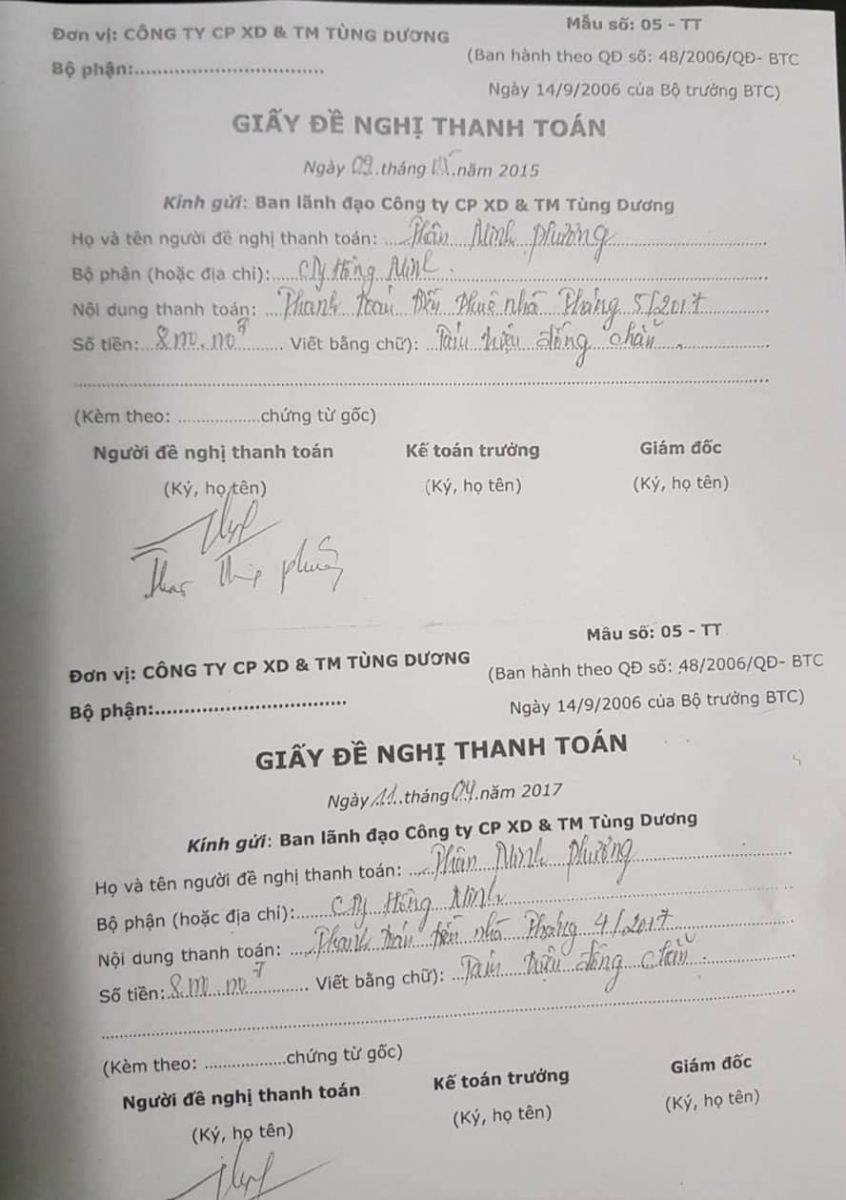 Đơn vị: CÔNG TY CP XD & TM TÙNG DƯƠNG
Mẫu số: 05 - TT
Bộ phận:................................
(Ban hành theo QĐ số: 48/2006/QĐ- BTC
Ngày 14/9/2006 của Bộ trưởng BTC)
GIẤY ĐỀ NGHỊ THANH TOÁN
Ngày 09 tháng 05 năm 2015
Kính gửi: Ban lãnh đạo Công ty CP XD & TM Tùng Dương
Họ và tên người đề nghị thanh toán: Minh Phương
Bộ phận (hoặc địa chỉ): Cty Hồng Minh
Nội dung thanh toán: Thanh toán tiền thuê nhà tháng 5/2017
Số tiền: Viết bằng chữ): Tám triệu đồng chẵn
(Kèm theo: ..................chứng từ gốc)
Người đề nghị thanh toán Kế toán trưởng Giám đốc
(Ký, họ tên) (Ký, họ tên) (Ký, họ tên)
Mẫu số: 05 - TT
Đơn vị: CÔNG TY CP XD & TM TÙNG DƯƠNG
(Ban hành theo QĐ số: 48/2006/QĐ- BTC
Bộ phận:................................
Ngày 14/9/2006 của Bộ trưởng BTC)
GIẤY ĐỀ NGHỊ THANH TOÁN
Ngày 11 tháng 04 năm 2017
Kính gửi: Ban lãnh đạo Công ty CP XD & TM Tùng Dương
Họ và tên người đề nghị thanh toán: Minh Phương
Bộ phận (hoặc địa chỉ): Cty Hồng Minh
Nội dung thanh toán: Thanh toán tiền nhà tháng 4/2017
Số tiền: Viết bằng chữ): Tám triệu đồng chẵn
(Kèm theo: ..................chứng từ gốc)
Người đề nghị thanh toán Kế toán trưởng Giám đốc
(Ký, họ tên) (Ký, họ tên) (Ký, họ tên)